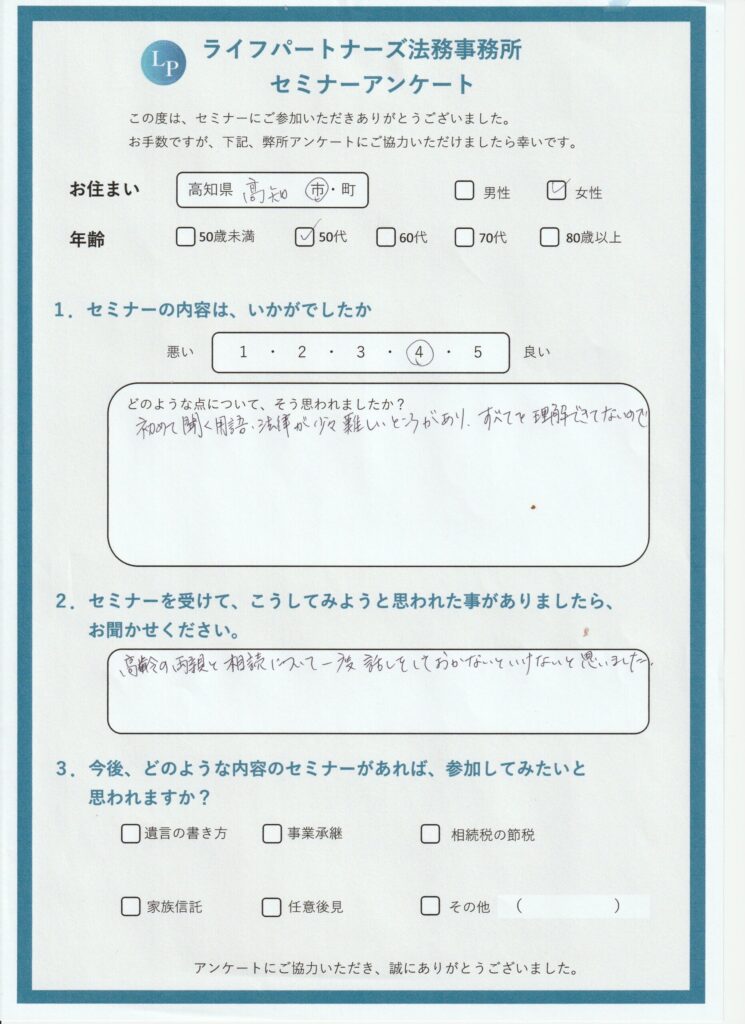 LP
ライフパートナーズ法務事務所
セミナーアンケート
この度は、セミナーにご参加いただきありがとうございました。
お手数ですが、下記、弊所アンケートにご協力いただけましたら幸いです。
お住まい 高知県 高知 市・町 男性 女性
年齢 50歳未満 50代 60代 70代 80歳以上
1．セミナーの内容は、いかがでしたか
悪い 1 ・ 2 ・ 3 ・ 4 ・ 5 良い
どのような点について、そう思われましたか？
初めて聞く用語、法律が少々難しいところがあり、すべてを理解できてないので
2．セミナーを受けて、こうしてみようと思われた事がありましたら、
お聞かせください。
高齢の両親と相続について一度話しをしておかないといけないと思いました。
3．今後、どのような内容のセミナーがあれば、参加してみたいと
思われますか？
遺言の書き方 事業承継 相続税の節税
家族信託 任意後見 その他 （ ）
アンケートにご協力いただき、誠にありがとうございました。